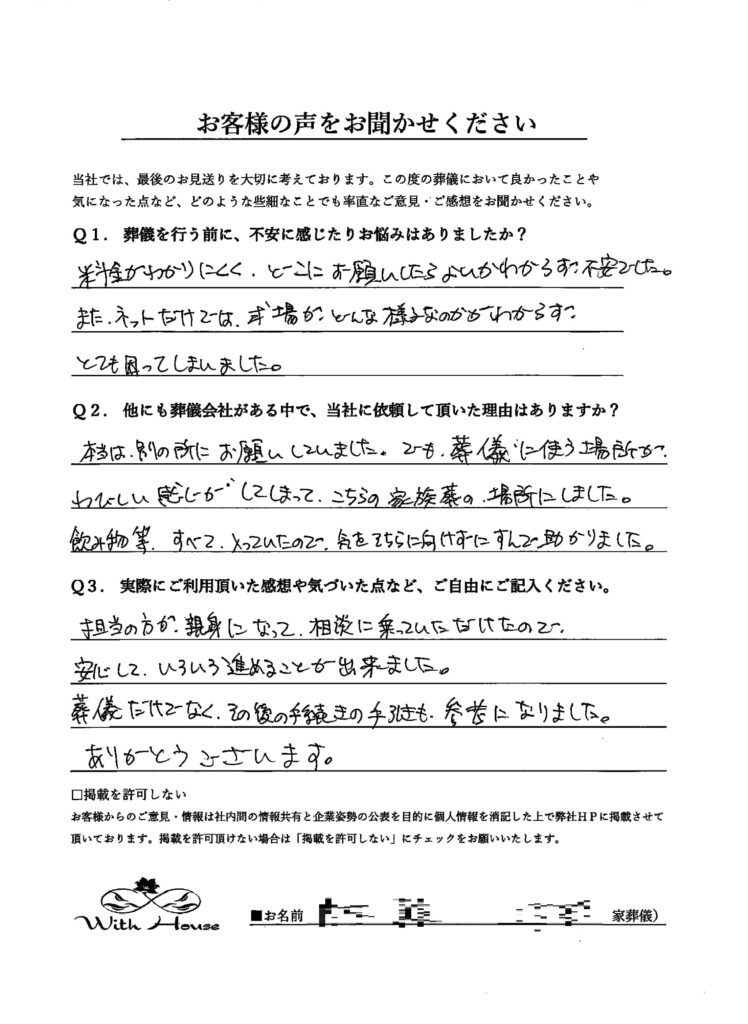 お客様の声をお聞かせください
当社では、最後のお見送りを大切に考えております。この度の葬儀において良かったことや
気になった点など、どのような些細なことでも率直なご意見・ご感想をお聞かせください。
Q1. 葬儀を行う前に、不安に感じたりお悩みはありましたか?
料金がわかりにくく、どこにお願いしたらよいかわからず不安でした。
また、ネットだけでは、式場がどんな様子なのかがわからず
とても困ってしまいました。
Q2. 他にも葬儀会社がある中で、当社に依頼して頂いた理由はありますか?
本当は、別の所にお願いしていました。でも、葬儀に使う場所が、
わびしい感じがしてしまって、こちらの家族葬の場所にしました。
飲み物等、すべて、とっていたので、気をそちらに向けずにすんで助かりました。
Q3. 実際にご利用頂いた感想や気づいた点など、ご自由にご記入ください。
担当の方が、親身になって、相談に乗っていただけたので、
安心して、いろいろ進めることが出来ました。
葬儀だけでなく、その後の手続きの手引きも、参考になりました。
ありがとうございます。
□掲載を許可しない
お客様からのご意見・情報は社内間の情報共有と企業姿勢の公表を目的に個人情報を消記した上で弊社HPに掲載させて
頂いております。掲載を許可頂けない場合は「掲載を許可しない」にチェックをお願いいたします。
With House
■お名前 家葬儀)